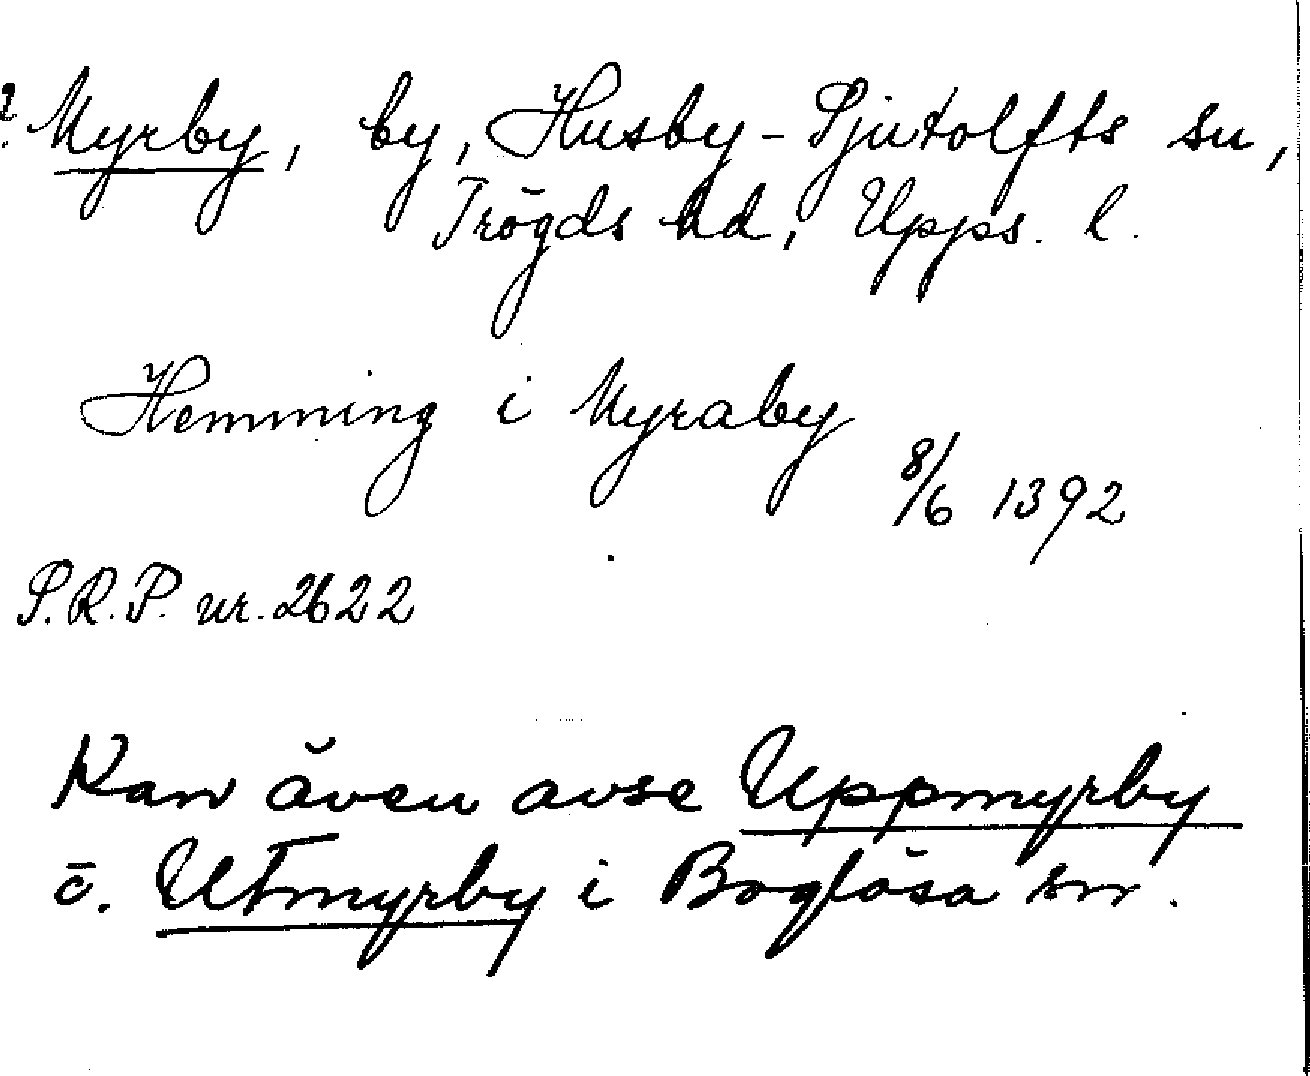 ? Myrby, by, Husby-Sjutolfts sn,
Trögds hd, Upps. l.
Hemming i Myraby
8/6 1392
S.R.P. nr. 2622
Kan även avse Uppmyrby
o. Utmyrby i Boglösa sn.